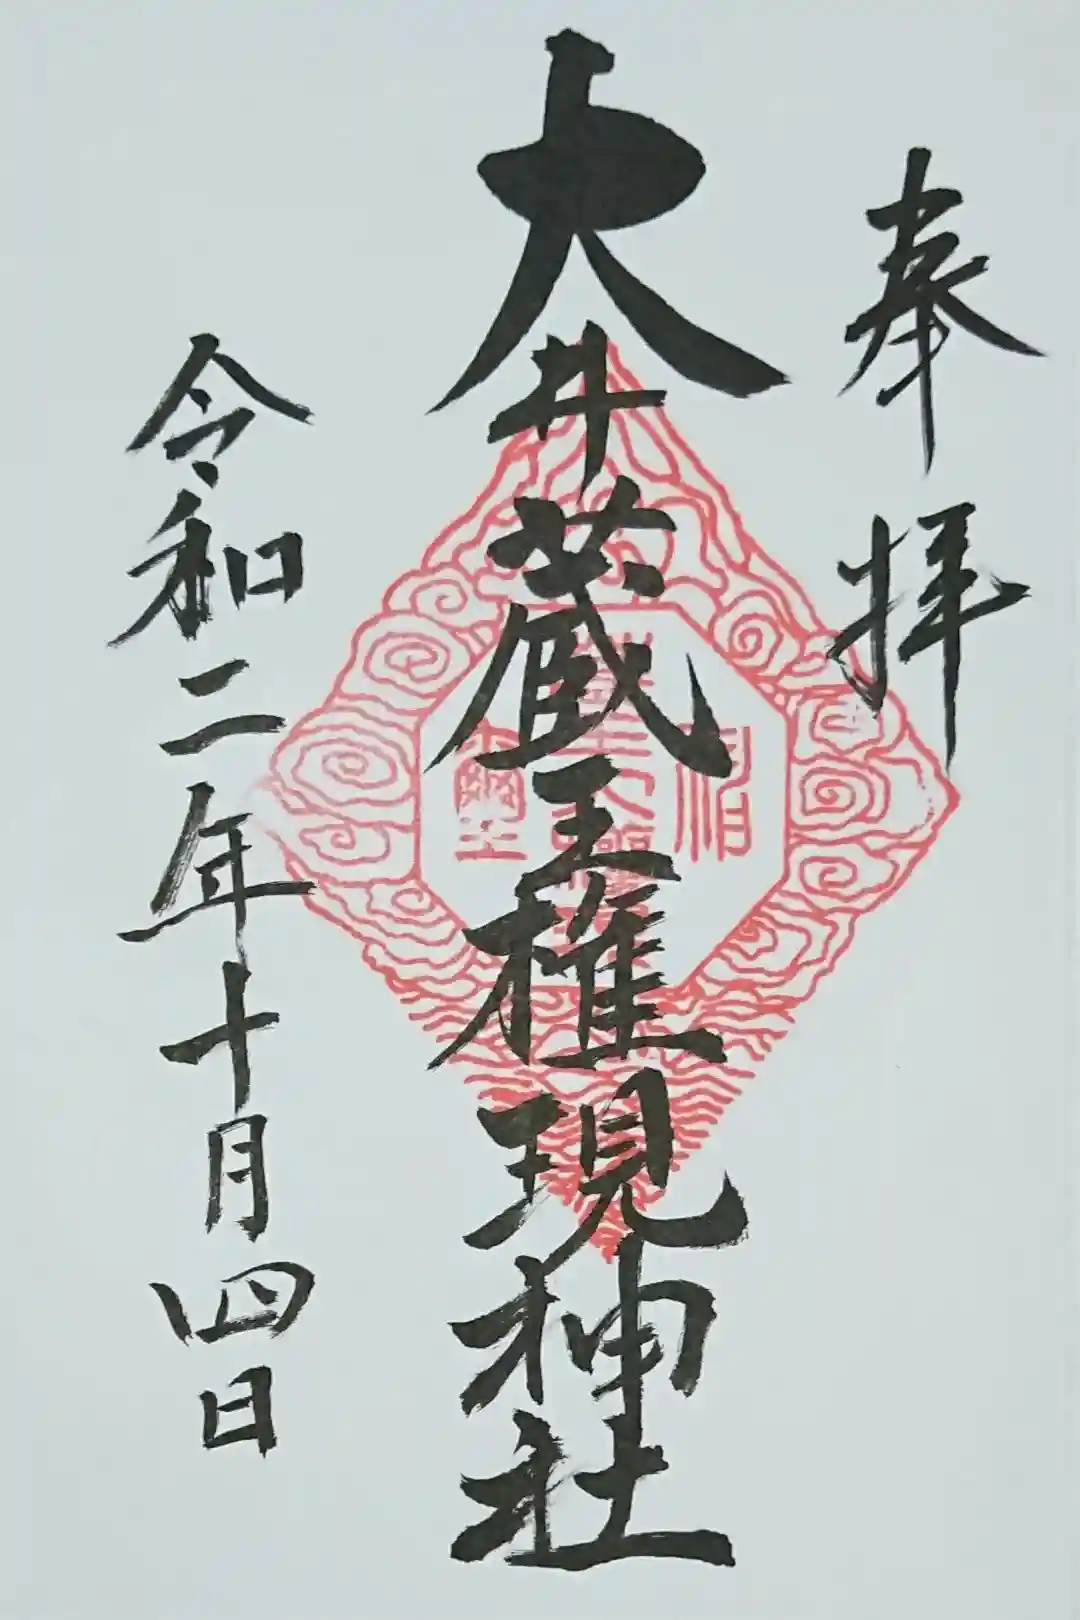 奉拝
大井蔵王権現神社
令和二年十月四日